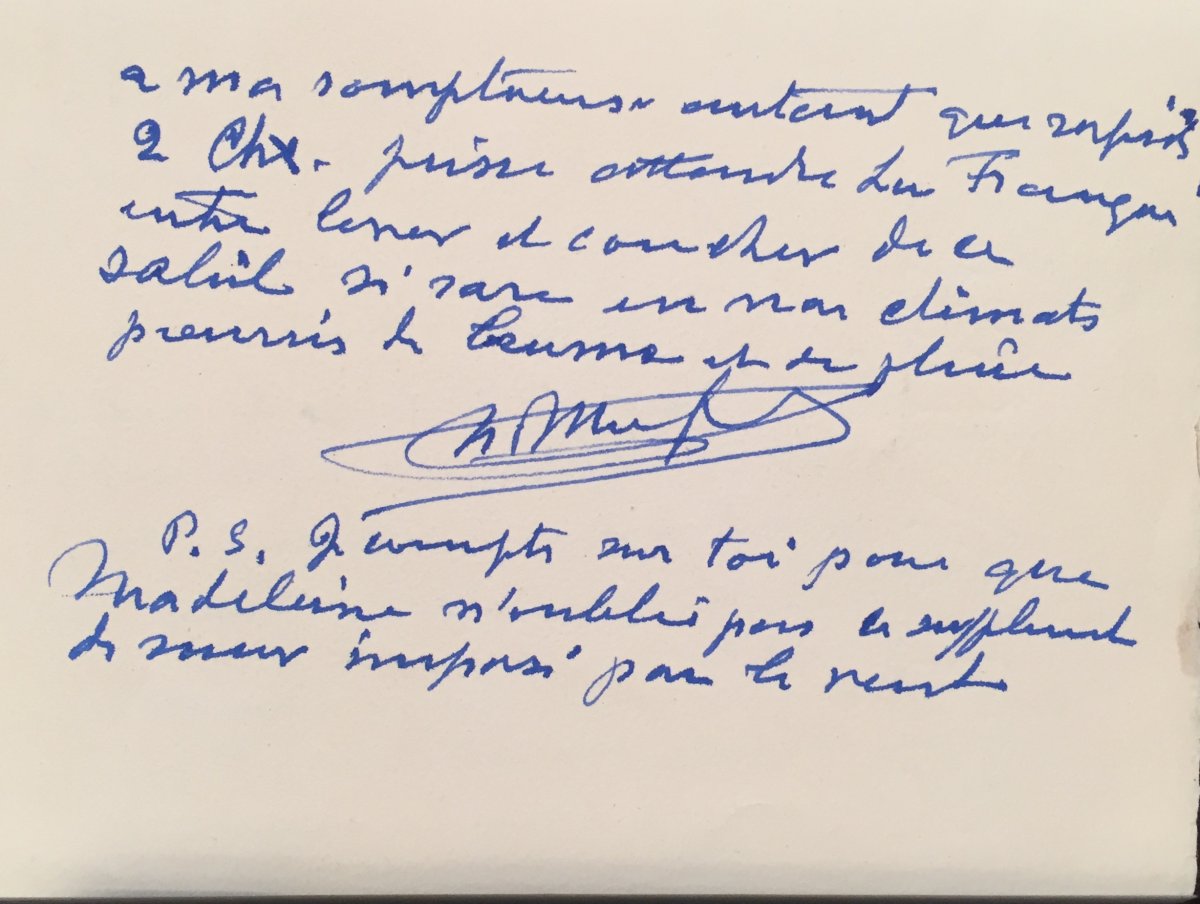 a ma somptueuse autant que rapide
2 Chx. puisse atteindre Le
entre lever et coucher de ce
soleil si rare en nos climats
pourris de brume et de pluie
P. S. Je compte sur toi pour que
Madeleine n'oublie pas ce supplément
de sueur imposé par le vent